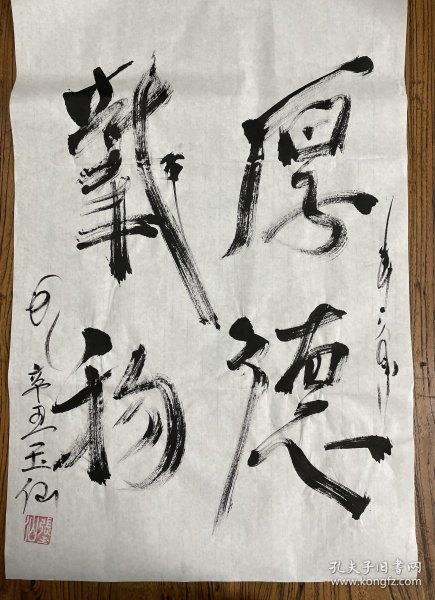 厚德
载物
辛丑玉仙
孔夫子旧书网
www.kongfz.com